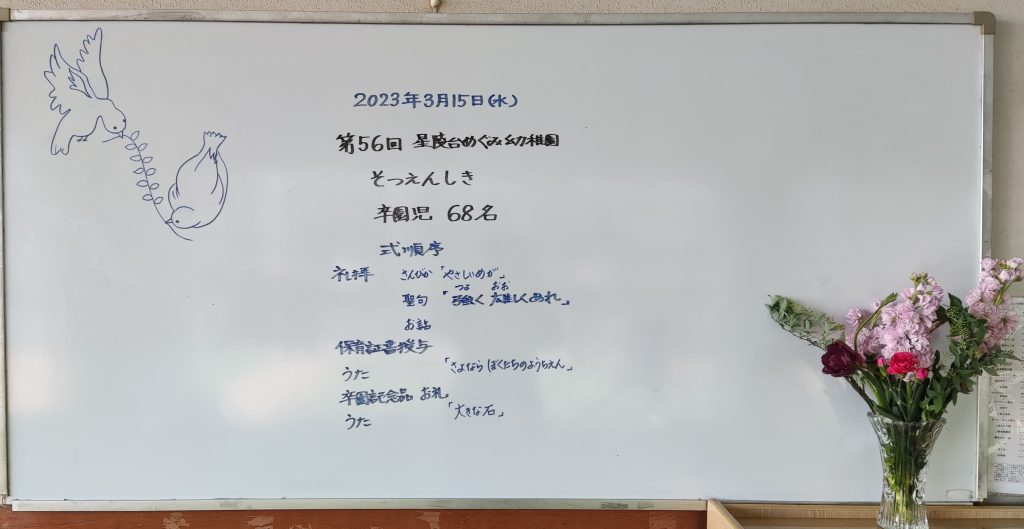 2023年3月15日(水)
第56回 星陵台めぐみ幼稚園
そつえんしき
卒園児 68名
式順序
礼拝 さんびか「やさしいめが」
つよ おお
聖句「強く 雄雄しくあれ」
お話
保育証書授与
うた 「さよなら ぼくたちのようちえん」
卒園記念品 お礼
うた 「大きな石」